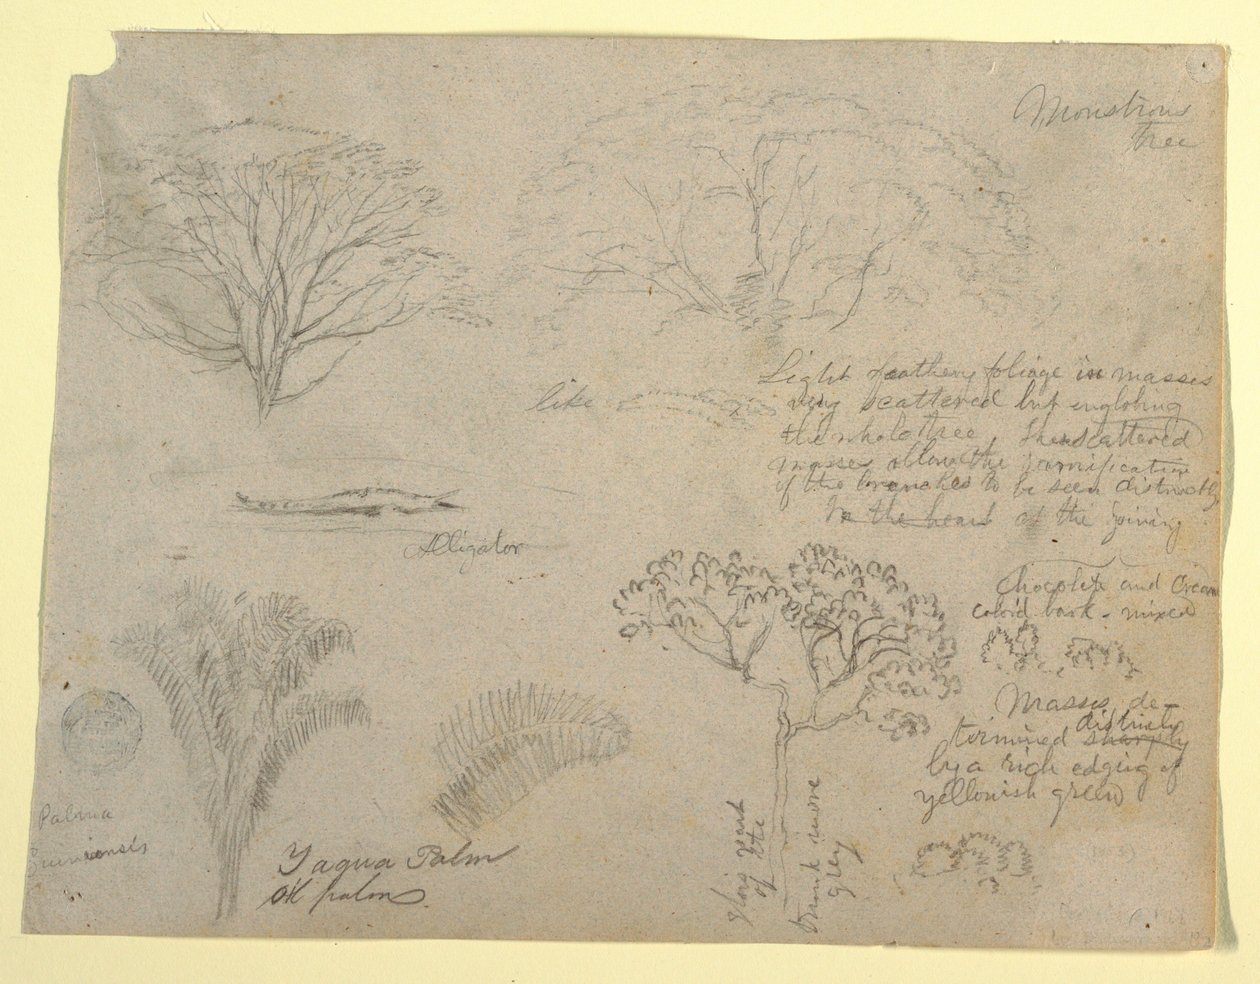 Monstrous
Tree
Light feathery foliage in masses
very scattered but englobing
the whole tree. The scattered
masses allow the ramification
of the branches to be seen distinctly
In the heart of the
like
Alligator
Chocolate and Cream
color'd bark - mixed
Masses de-
distinctly
termined sharply
by a rich edging of
yellowish green
this part
of the
trunk more
grey
Palma
Yagua Palm
Oil palm